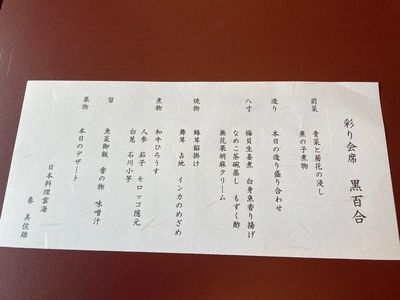 彩り会席 黒百合
前菜 青菜と菊花の浸し
魚の子煮物
造り 本日の造り盛り合わせ
八寸 梅貝生姜煮 白身魚香り揚げ
なめこ茶碗蒸し もずく酢
無花果胡麻クリーム
焼物 鰆菊餡掛け
舞茸 占地 インカのめざめ
煮物 和牛ひろうす
人参 茄子 モロッコ隠元
白葱 石川小芋
留 魚菜御飯 香の物 味噌汁
果物 本日のデザート
日本料理雲海
秦 美佐雄